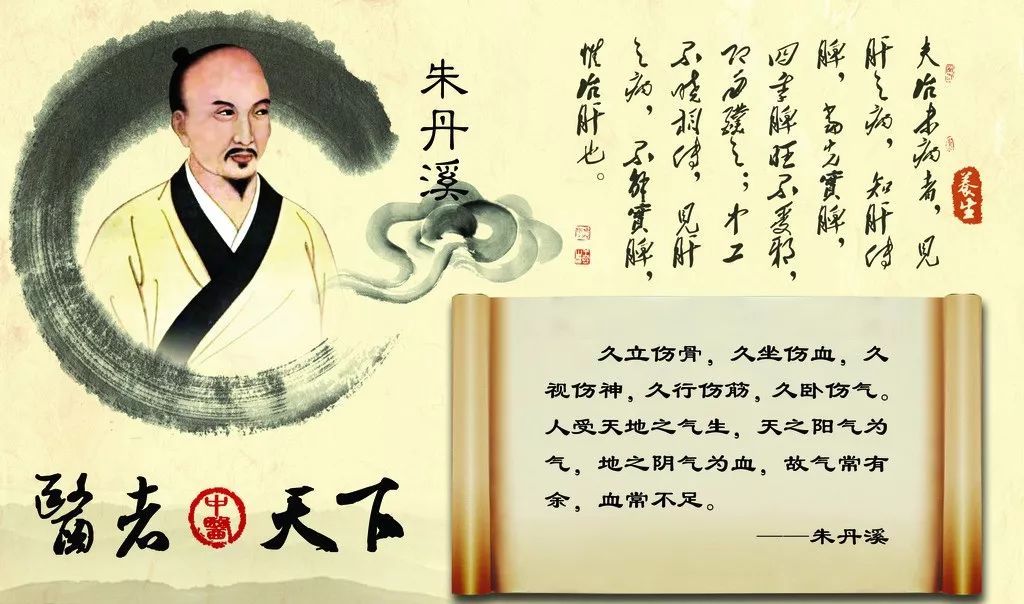 朱丹溪
夫治未病者，见
肝之病，知肝传
脾，当先实脾，
四季脾旺不受邪，
即勿补之；中工
不晓相传，见肝
之病，不解实脾，
惟治肝也。
養生
久立伤骨，久坐伤血，久
视伤神，久行伤筋，久卧伤气。
人受天地之气生，天之阳气为
气，地之阴气为血，故气常有
余，血常不足。
——朱丹溪
醫者中醫天下